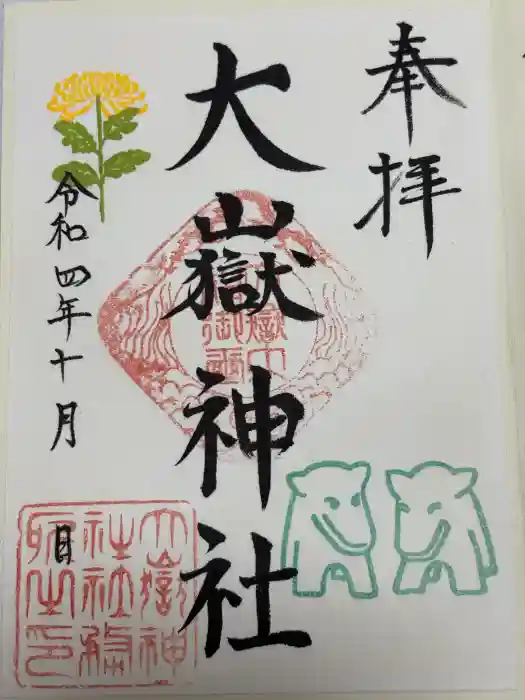 奉拝
大嶽神社
令和四年十月
日
大嶽神
社社務
所之印